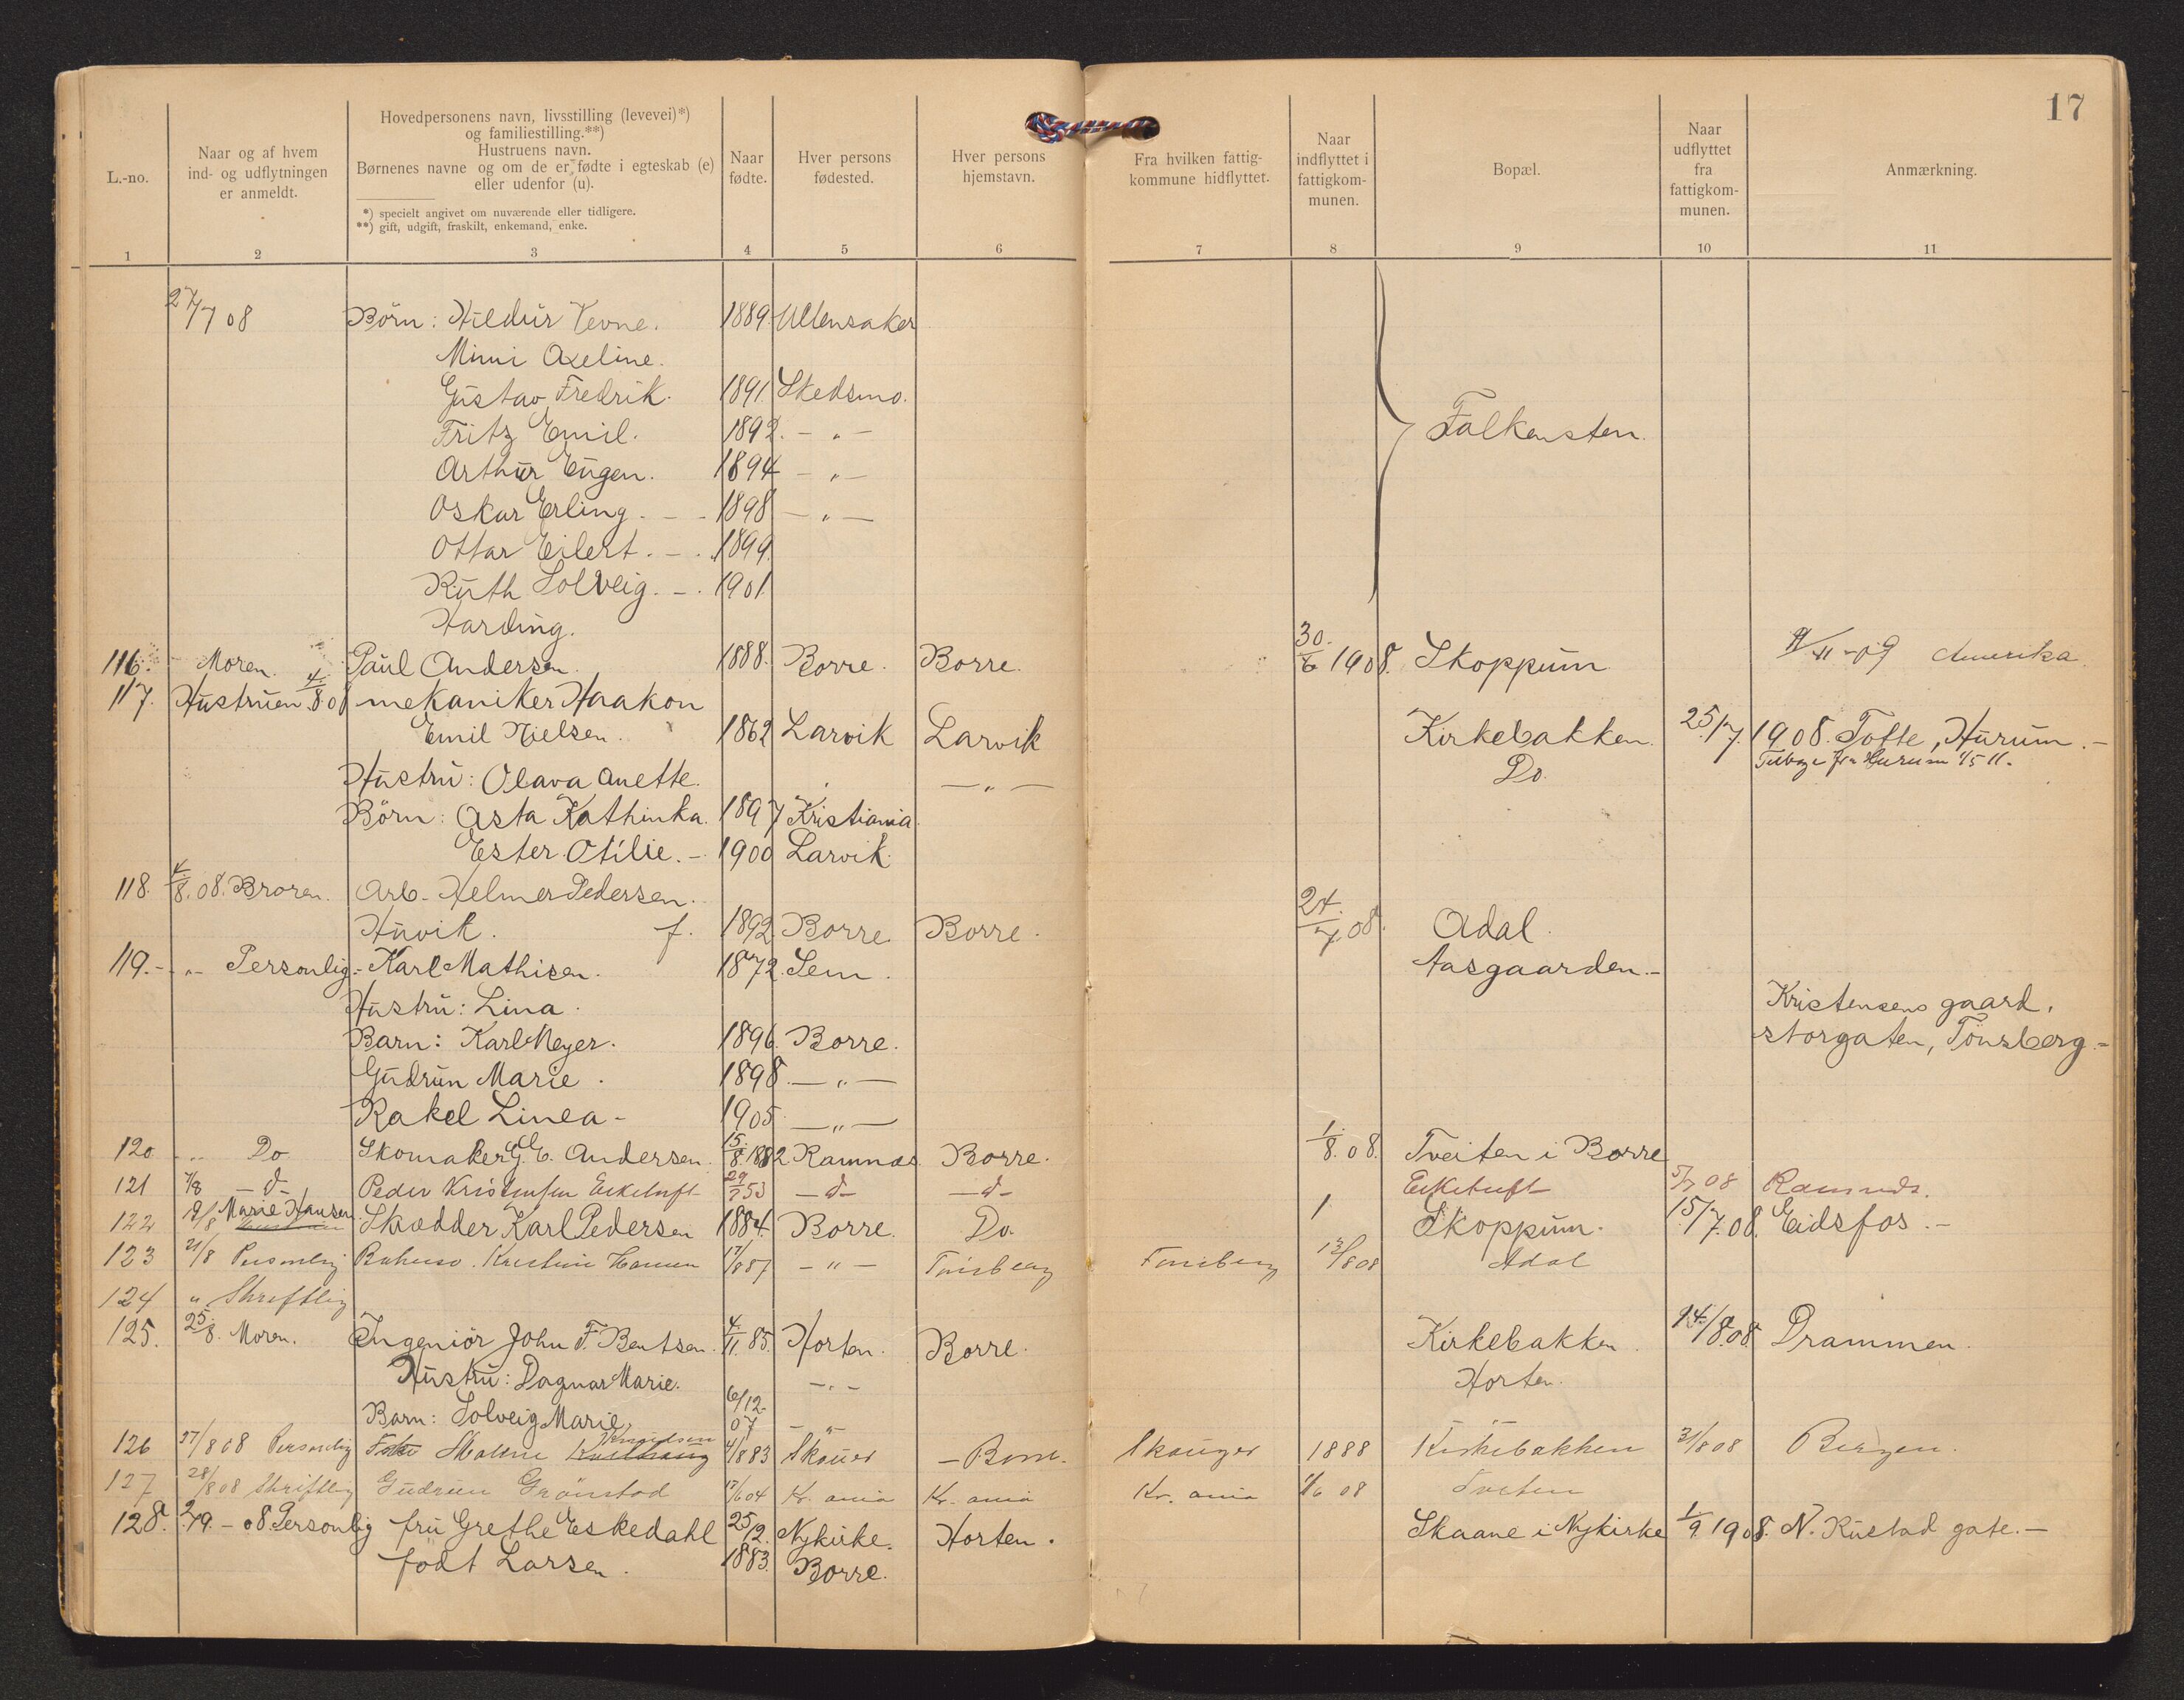 17
L.-no.
Naar og af hvem
ind- og udflytningen
er anmeldt.
Hovedpersonens navn, livsstilling (levevei)*)
og familiestilling.**)
Hustruens navn.
Børnenes navne og om de er fødte i egteskab (e)
eller udenfor (u).
*) specielt angivet om nuværende eller tidligere.
**) gift, udgift, fraskilt, enkemand, enke.
Naar
fødte.
Hver persons
fødested.
Hver persons
hjemstavn.
Fra hvilken fattig-
kommune hidflyttet.
Naar
indflyttet i
fattigkom-
munen.
Bopæl.
Naar
udflyttet
fra
fattigkom-
munen.
Anmærkning.
1 2 3 4 5 6 7 8 9 10 11
27/7 08 Börn: Hildur 1889. Ullensaker
Mimi Axeline.
Gustav Fredrik. 1891. Skedsmo.
Fritz Emil. 1892. - " - Falkensten.
Arthur Eugen. 1894 - " -
Oskar Erling. - - 1898 - " -
Ottar Eilert. - . 1899.
Ruth Solveig. - . 1901
Harding.
116. Moren. Paul Andersen. 1888. Borre. Borre. 30./6 1908. Skoppum -09 Amerika.
117. Hustruen 4./8.08 mekaniker Haakon
Emil Nielsen. 1862 Larvik Larvik Kirkebakken. 25./7. 1908. Tofte, Hurum. -
Hustru: Olava Anette. - " - Do. fra Hurum 1/5 11.
Börn: Asta Kathinka. 1897 Kristiania.
Ester Otilie. - 1900 Larvik.
118. 4./8. 08. Broren. Arb. Helmer Pedersen.
Huvik. f. 1892 Borre. Borre. 24./7. 08. Adal.
119. - " - Personlig. - Karl Mathisen. 1872. Sem. Aasgaarden. -
Hustru: Lina. Kristensens gaard,
Barn: Karl Meyer. 1896. Borre. storgaten, Tönsberg. -
Gudrun Marie. 1898. - " -
Rakel Linea - 1905 - " -
120 " Do Skomaker G. E. Andersen. 15./8. 1882 Ramnæs. Borre. 1./8. 08. Tveiten i Borre
121 7/8 - d - Peder Kristensen Esketuft 29/7 53 - d - - d - Esketuft 5/7 08 Ramnæs.
122 19/8 Marie Hansen Skrædder Karl Pedersen 1884. Borre. Do. 1 Skoppum. 15./7. 08. Eidsfos. -
123 21/8 Personlig Kristine Hansen 17/8 87 - " - Tönsberg Tönsberg 13/8 08 Adal
124 " Skriftlig
125. 25./8. Moren. Ingeniör John F. Bentsen. 4./11. 85. Horten. Borre. Kirkebakken. 14./8. 08. Drammen.
Hustru: Dagnar Marie. - " - Horten.
Barn: Solveig Marie. 6/12. 07 - " -
126 27/8 08 Personlig Knudsen 4/8 83 Skouer - Borre. Skouger 1888 Kirkebakken 31/8 08 Bergen.
127 28/8 08 Skriftlig Gudrun Grönstad 17/6 04 Kr. ania Kr. ania Kr. ania 1/6 08 Tveten
128. 2./9. - 08. Personlig fru Grethe Eskedahl 25/12. Nykirke. Horten. Skaane i Nykirke 1/9. 1908. N. Rustad gate. -
födt Larsen. 1883. Borre.